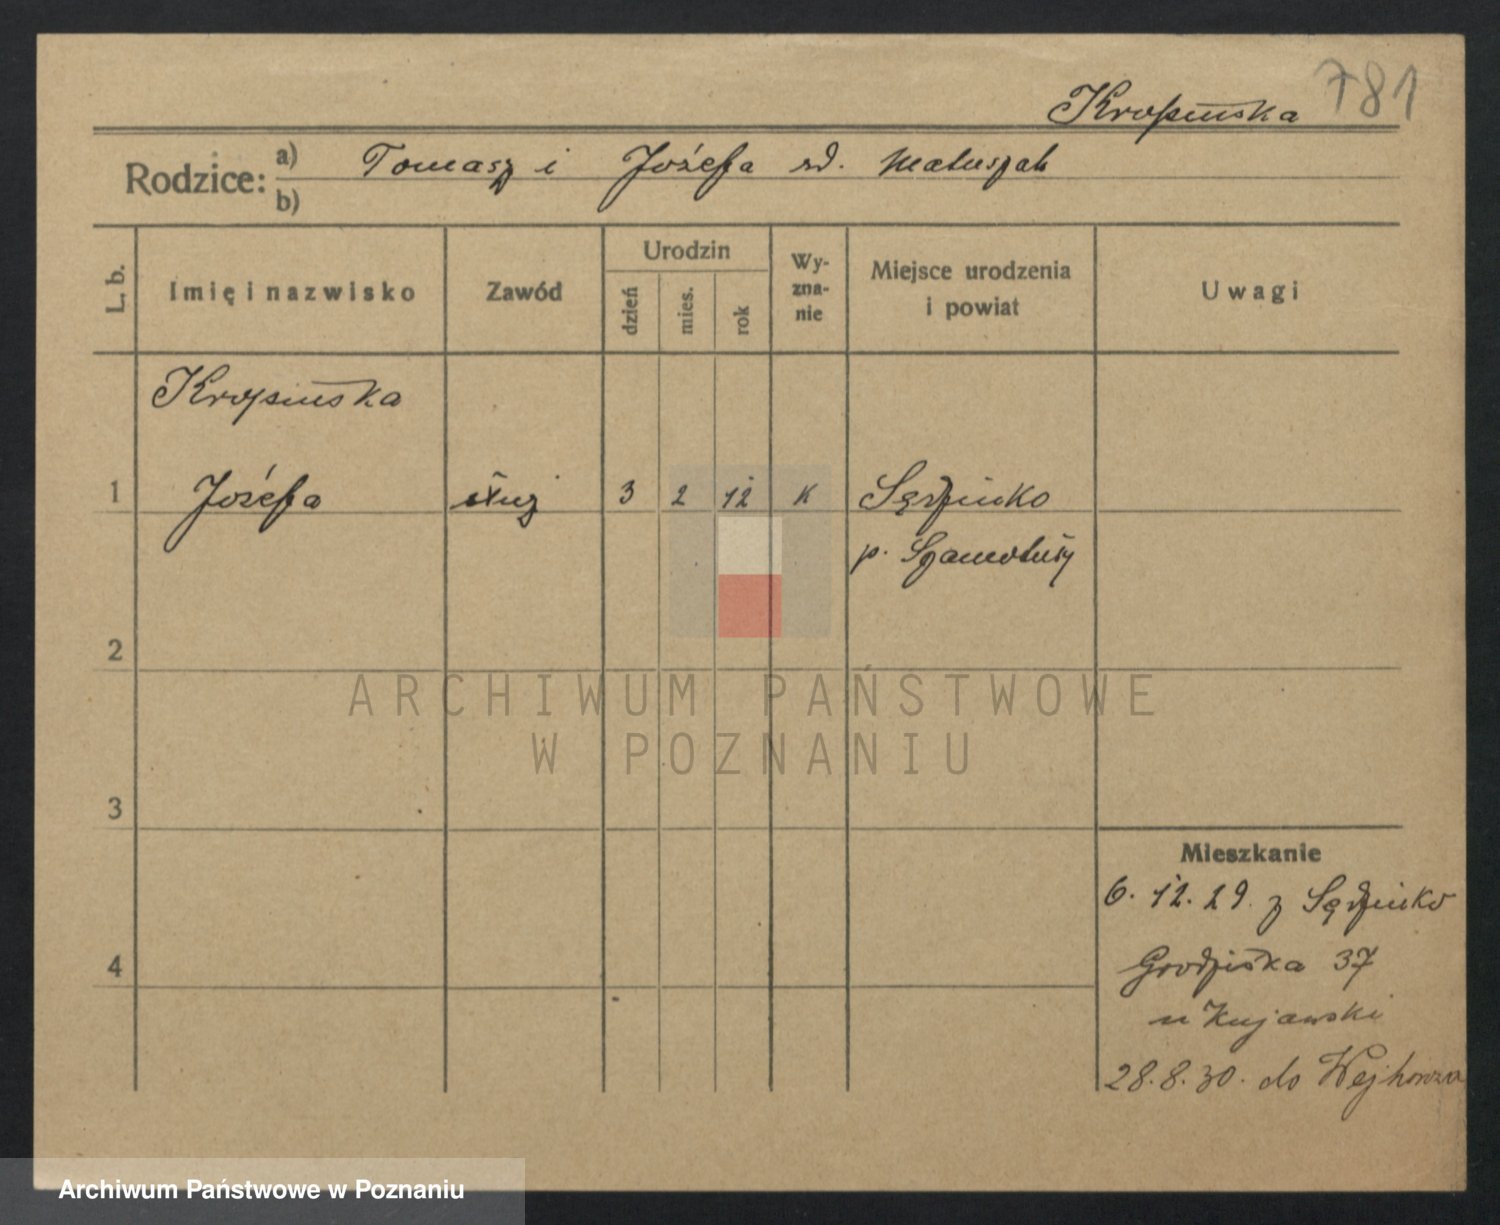 781
Kropińska
Rodzice: a) Tomasz i Józefa rd. Matuszak
b)
L. b.
Imię i nazwisko
Zawód
Urodzin
dzień
mies.
rok
Wy-
zna-
nie
Miejsce urodzenia
i powiat
Uwagi
Kropińska
1 Józefa służ 3 2 12 K Sędzinko
p. Szamotuły
2
3
4
Mieszkanie
6. 12. 29. z Sędzinko
Grodziska 37
u Kujawski
28.8.30. do
ARCHIWUM PAŃSTWOWE
W POZNANIU
Archiwum Państwowe w Poznaniu